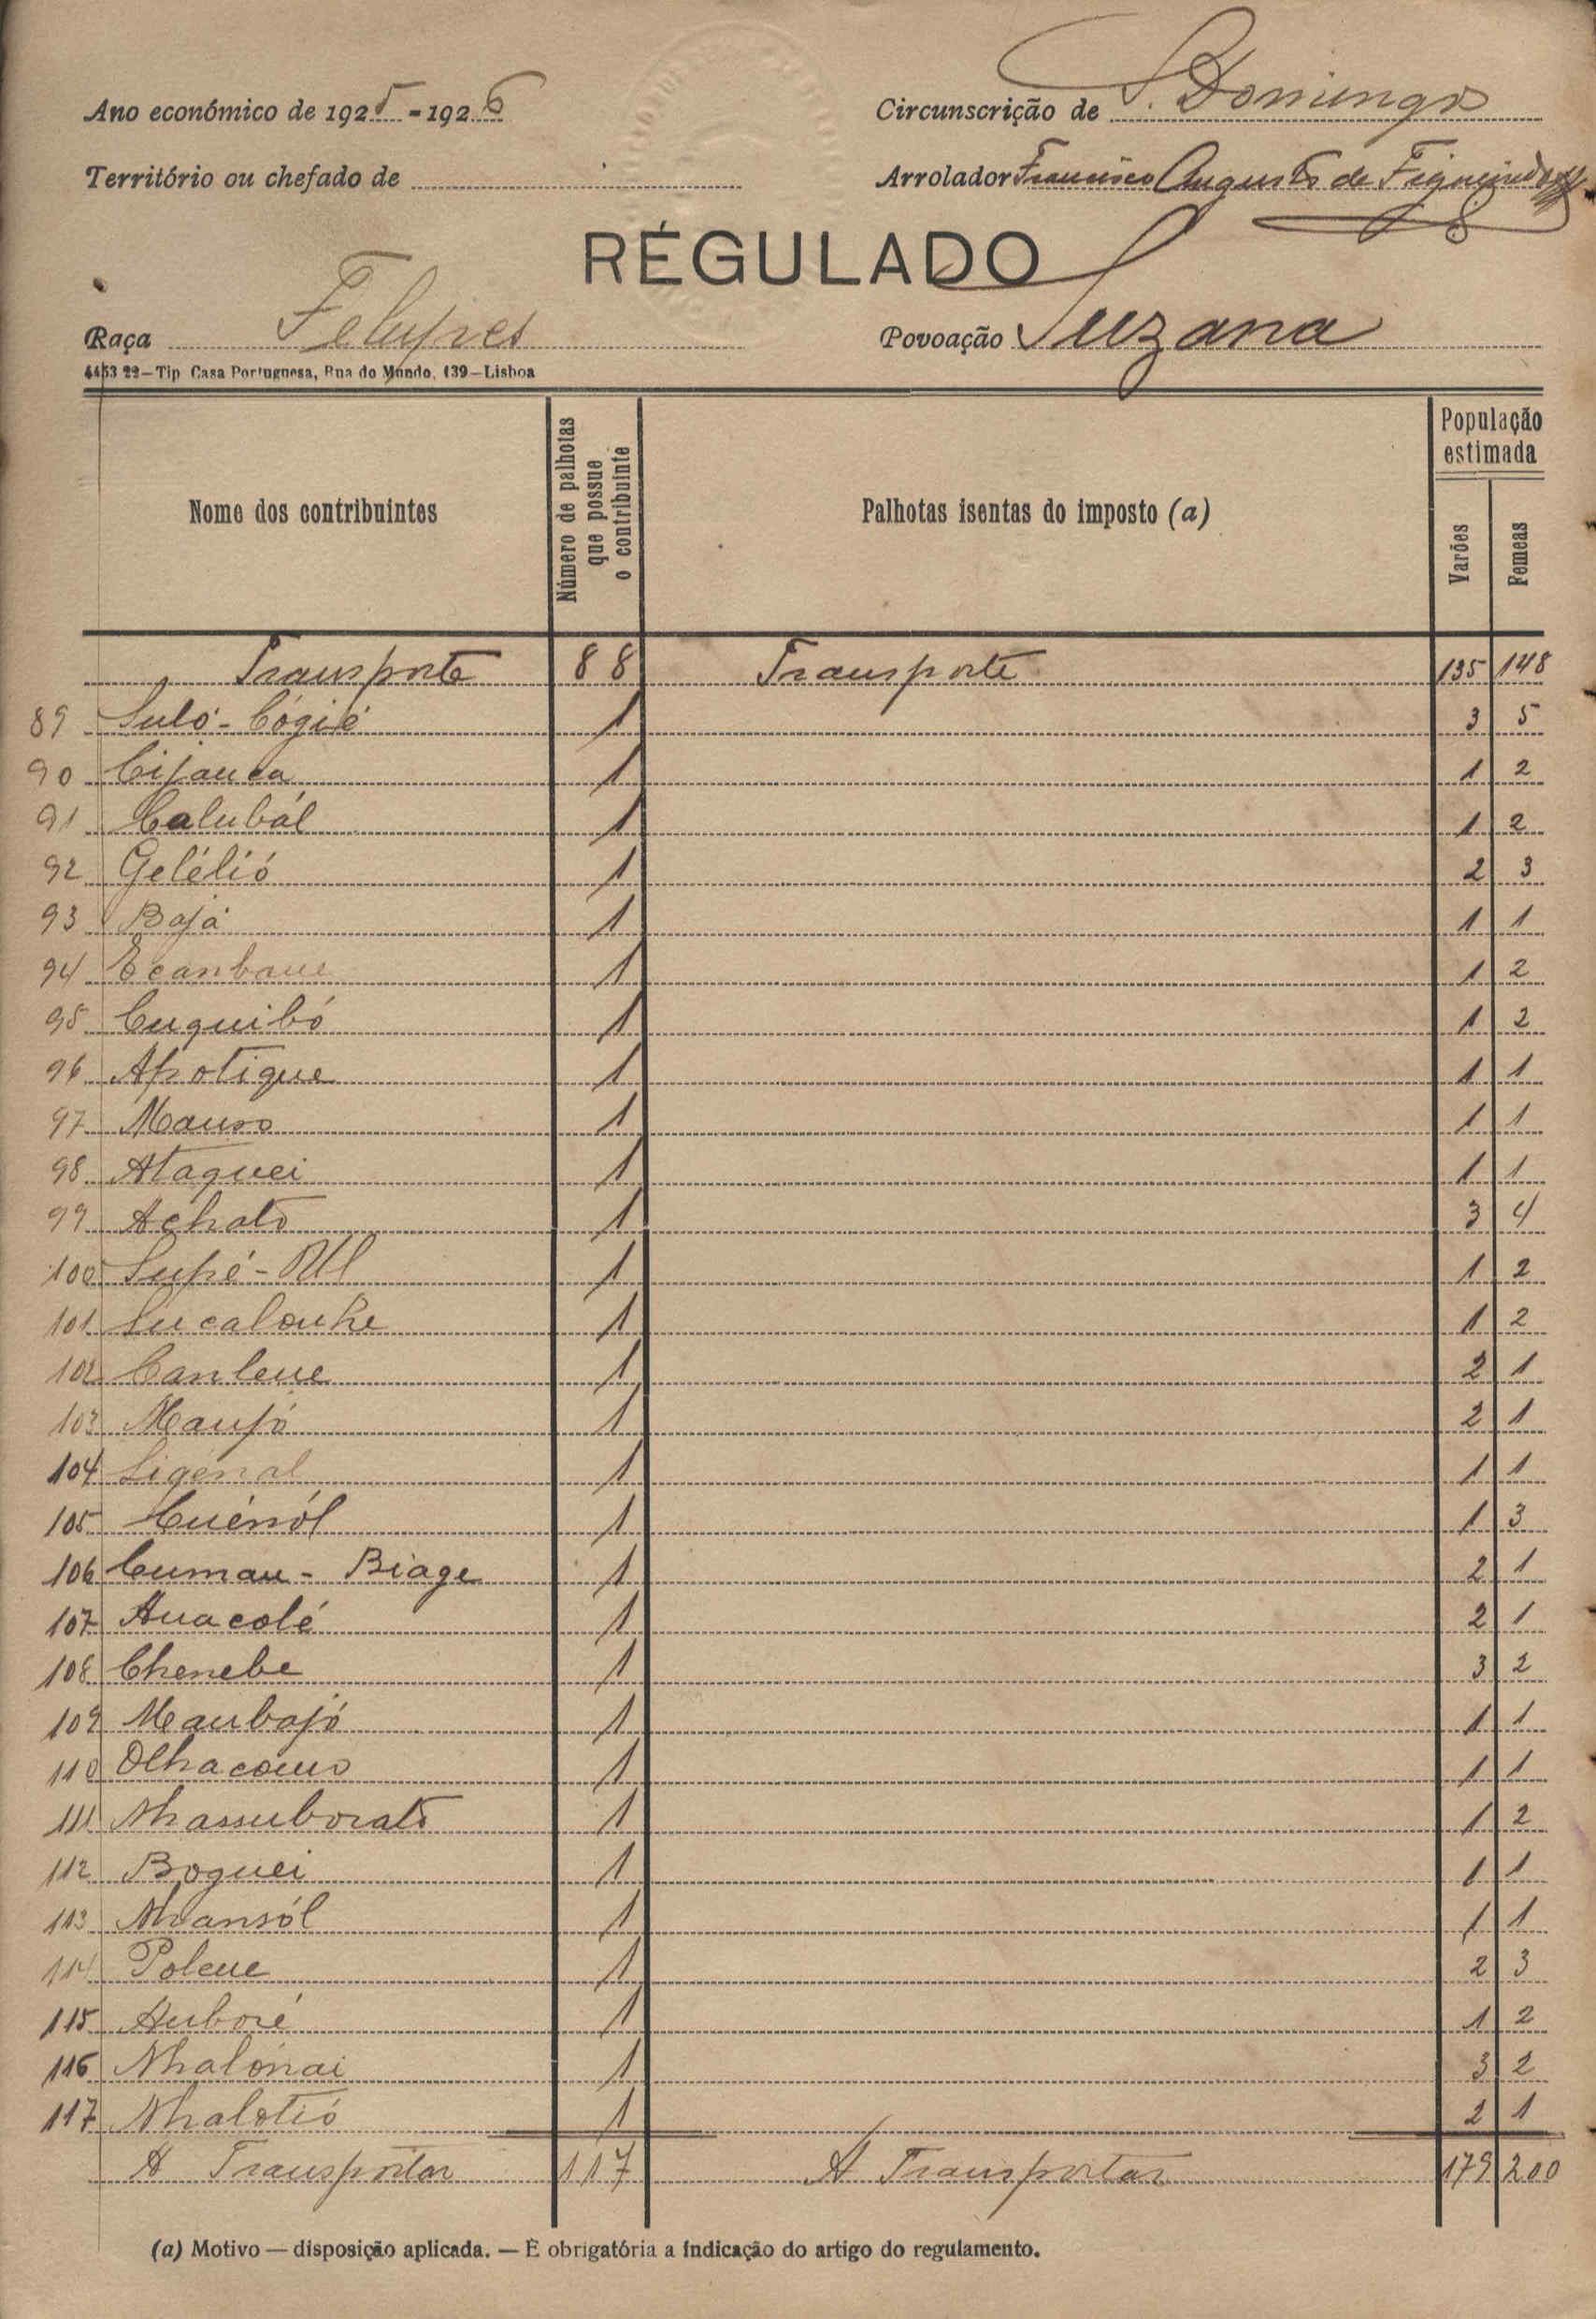 Ano económico de 1925-1926
Circunscrição de S. Domingos
Território ou chefado de
Arrolador Francisco Augusto de Figueiredo
RÉGULADO
Raça Felupes
Povoação Suzana
4453 22—Tip Casa Portuguesa, Rua do Mundo, 139—Lisboa
Nome dos contribuintes
Número de palhotas que possue o contribuinte
Palhotas isentas do imposto (a)
População estimada
Varões
Femeas
Transporte 88 Transporte 135 148
89 Suló-Cógié 1 3 5
90 Cijauca 1 1 2
91 Calubál 1 1 2
92 Gelélió 1 2 3
93 Bajá 1 1 1
94 Ecanbaue 1 1 2
95 Cuquibó 1 1 2
96 Apotique 1 1 1
97 Mauro 1 1 1
98 Ataquei 1 1 1
99 Achato 1 3 4
100 Supé- 1 1 2
101 Sucalouke 1 1 2
102 Canleue 1 2 1
103 Maujó 1 2 1
104 Sigénal 1 1 1
105 Cuénól 1 1 3
106 Cumau- Biage 1 2 1
107 Auacolé 1 2 1
108 Chenebe 1 3 2
109 Maubajó 1 1 1
110 Olhacouo 1 1 1
111 Nhassuborato 1 1 2
112 Boguei 1 1 1
113 Nhansól 1 1 1
114 Poleue 1 2 3
115 Auboré 1 1 2
116 Nhalónai 1 3 2
117 Nhalotió 1 2 1
A Transportar 117 A Transportar 179 200
(a) Motivo — disposição aplicada. — É obrigatória a indicação do artigo do regulamento.